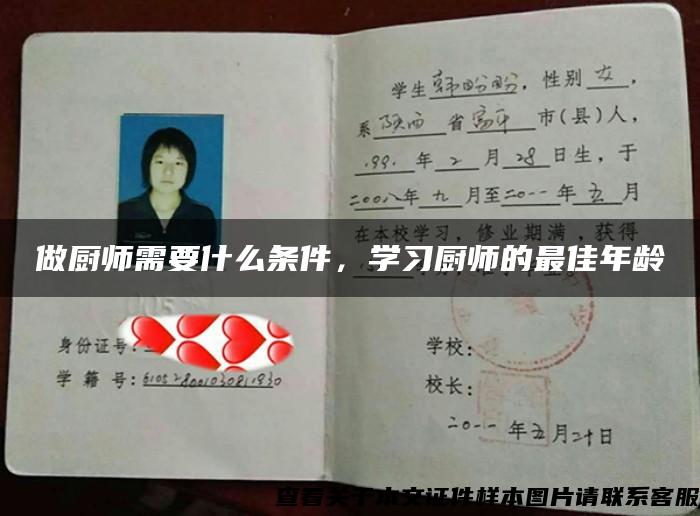 学生韩盼盼，性别女，
系陕西省富平市(县)人，
1991年2月28日生，于
二00八年九月至二0一一年五月
在本校学习，修业期满，获得
做厨师需要什么条件，学习厨师的最佳年龄
身份证号:
学籍号:610528001030811930
学校:
校长:
二0一一年五月二十日
查看关于本文证件样本图片请联系客服